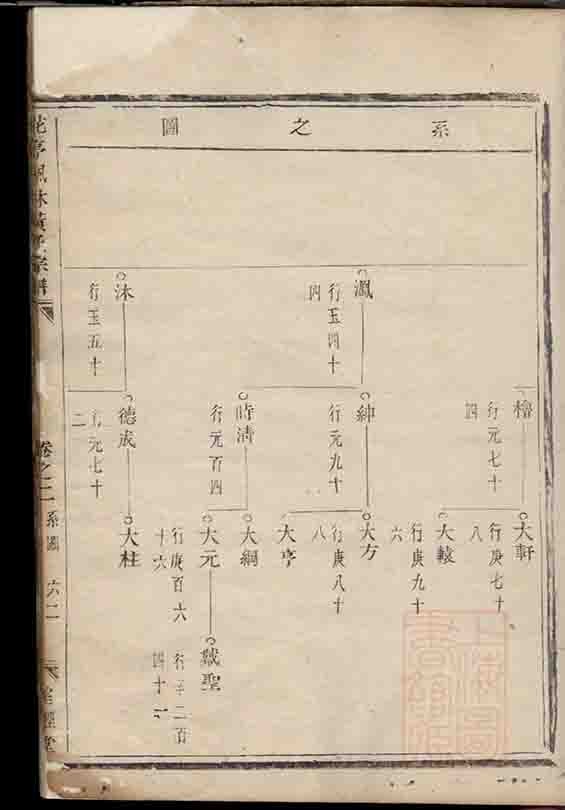 系之圖
檜
行元七十四
大軒
行庚七十八
大轅
行庚九十六
渢
行玉四十四
紳
行元九十
大方
行庚八十八
大亨
時清
行元百四
大綱
大元
行庚百六十六
沐
行玉五十
德成
行元七十二
大柱
卷之二
系圖
六二